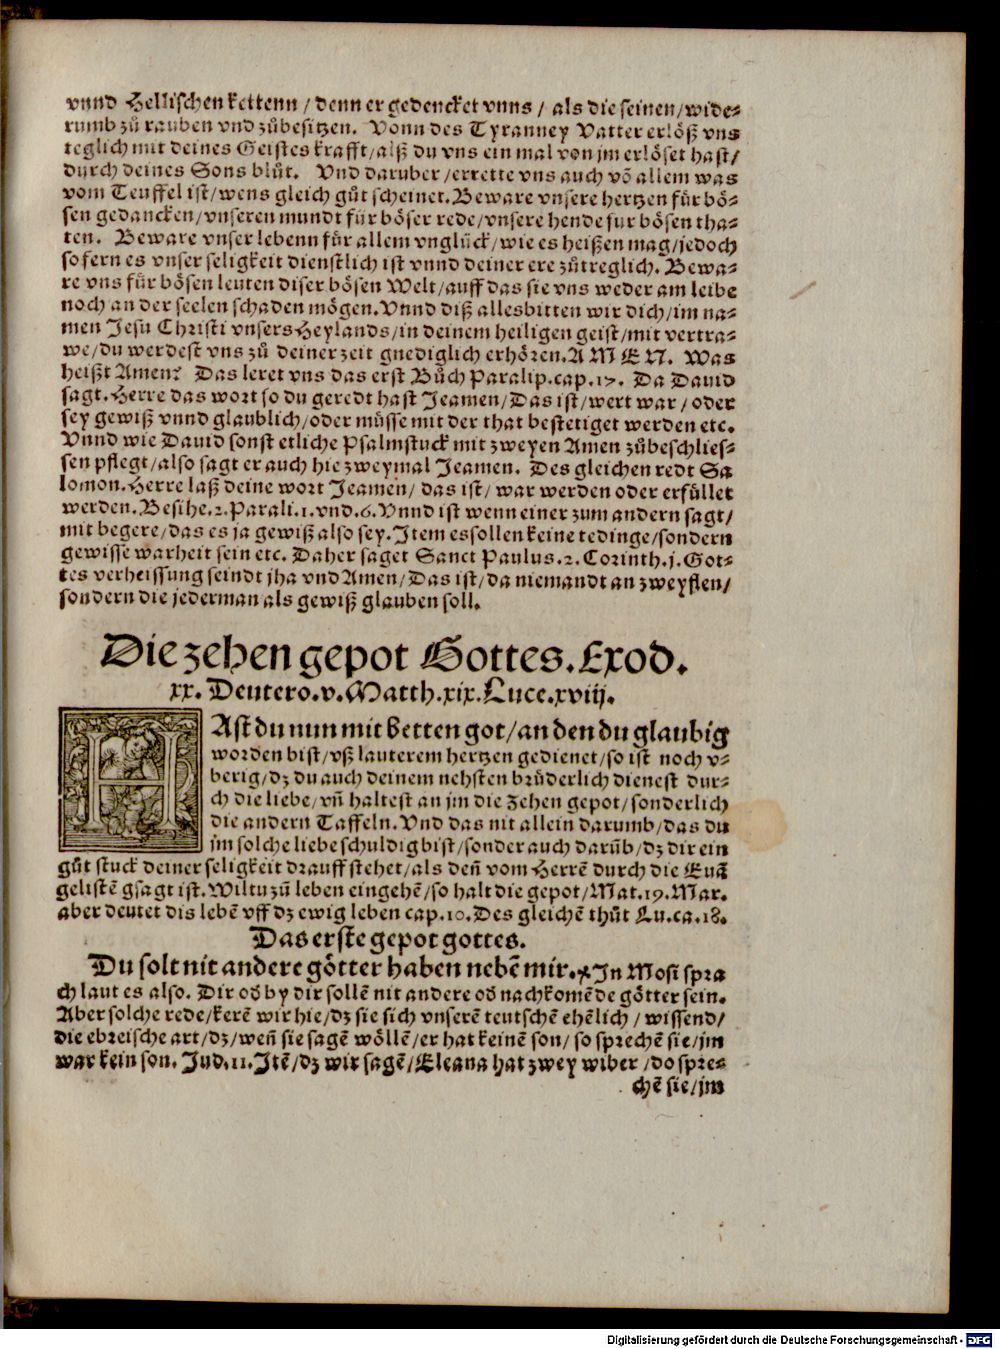 vnnd Hellischen kettenn / denn er gedencket vnns / als die seinen / wide⸗
rumb zů rauben vnd zůbesitzen. Vonn des Tyranney Vatter erlöß vns
teglich mit deines Geistes krafft / alß du vns ein mal von jm erlöset hast /
durch deines Sons blůt. Vnd daruber / errette vns auch võ allem was
vom Teuffel ist / wens gleich gůt scheinet. Beware vnsere hertzen für bö⸗
sen gedancken / vnseren mundt für böser rede / vnsere hende fur bösen tha⸗
ten. Beware vnser lebenn für allem vnglück / wie es heißen mag / jedoch
so fern es vnser seligkeit dienstlich ist vnnd deiner ere zůtreglich. Bewa⸗
re vns für bösen leuten diser bösen Welt / auff das sie vns weder am leibe
noch an der seelen schaden mögen. Vnnd diß alles bitten wir dich / im na⸗
men Jesu Christi vnsers Heylands / in deinem heiligen geist / mit vertra⸗
we / du werdest vns zů deiner zeit gnediglich erhören. A M E N. Was
heißt Amen? Das leret vns das erst Bůch Paralip. cap. 17. Da Dauid
sagt. Herre das wort so du geredt hast Jeamen / Das ist / wert war / oder
sey gewiß vnnd glaublich / oder müsse mit der that bestetiget werden etc.
Vnnd wie Dauid sonst etliche Psalmstuck mit zweyen Amen zůbeschlies⸗
sen pflegt / also sagt er auch hie zweymal Jeamen. Des gleichen redt Sa
lomon. Herre laß deine wort Jeamen / das ist / war werden oder erfüllet
werden. Besihe. 2. Parali. 1. vnd. 6. Vnnd ist wenn einer zum andern sagt /
mit begere / das es ja gewiß also sey. Item es sollen keine tedinge / sondern
gewisse warheit sein etc. Daher saget Sanct Paulus. 2. Corinth. j. Got⸗
tes verheissung seindt jha vnd Amen / Das ist / da niemandt an zweyflen /
sondern die jederman als gewiß glauben soll.
Die zehen gepot Gottes. Exod.
xx. Deutero. v. Matth. xix. Luce. xviij.
HAst du nun mit betten got / an den du glaubig
worden bist / vß lauterem hertzen gedienet / so ist noch v⸗
berig / dz du auch deinem nehsten brüderlich dienest dur⸗
ch die liebe / vñ haltest an jm die Zehen gepot / sonderlich
die andern Taffeln. Vnd das nit allein darumb / das du
jm solche liebe schuldig bist / sonder auch darũb / dz dir ein
gůt stuck deiner seligkeit drauff stehet / als deñ vom Herrẽ durch die Euã
gelistẽ gsagt ist. Wiltu zũ leben eingehẽ / so halt die gepot / Mat. 19. Mar.
aber deutet dis lebẽ vff dz ewig leben cap. 10. Des gleichẽ thůt Lu. ca. 18.
Das erste gepot gottes.
Du solt nit andere götter haben nebẽ mir. In Mosi spra
ch laut es also. Dir od by dir sollẽ nit andere od nachkomẽde götter sein.
Aber solche rede / kerẽ wir hie / dz sie sich vnserẽ teutschẽ ehẽlich / wissend /
die ebreische art / dz / weñ sie sagẽ wöllẽ / er hat keinẽ son / so sprechẽ sie / jm
war kein son. Jud. 11. Itẽ / dz wir sagẽ / Eleana hat zwey wiber / do spre⸗
chẽ sie / jm
Digitalisierung gefördert durch die Deutsche Forschungsgemeinschaft - DFG